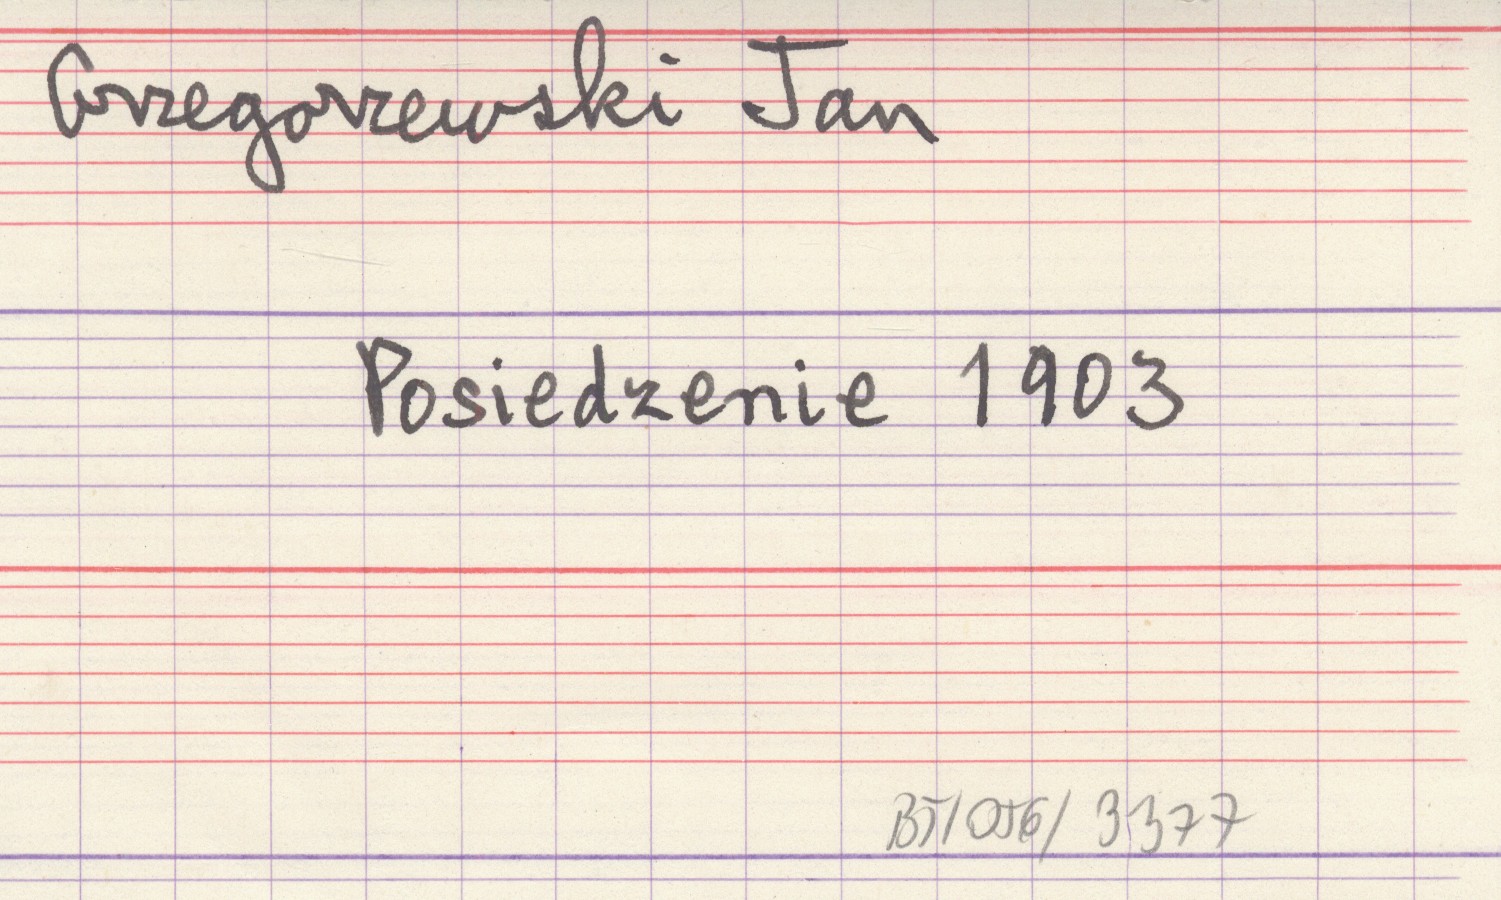 Grzegorzewski Jan
Posiedzenie 1903
BJ/OJ6/3377